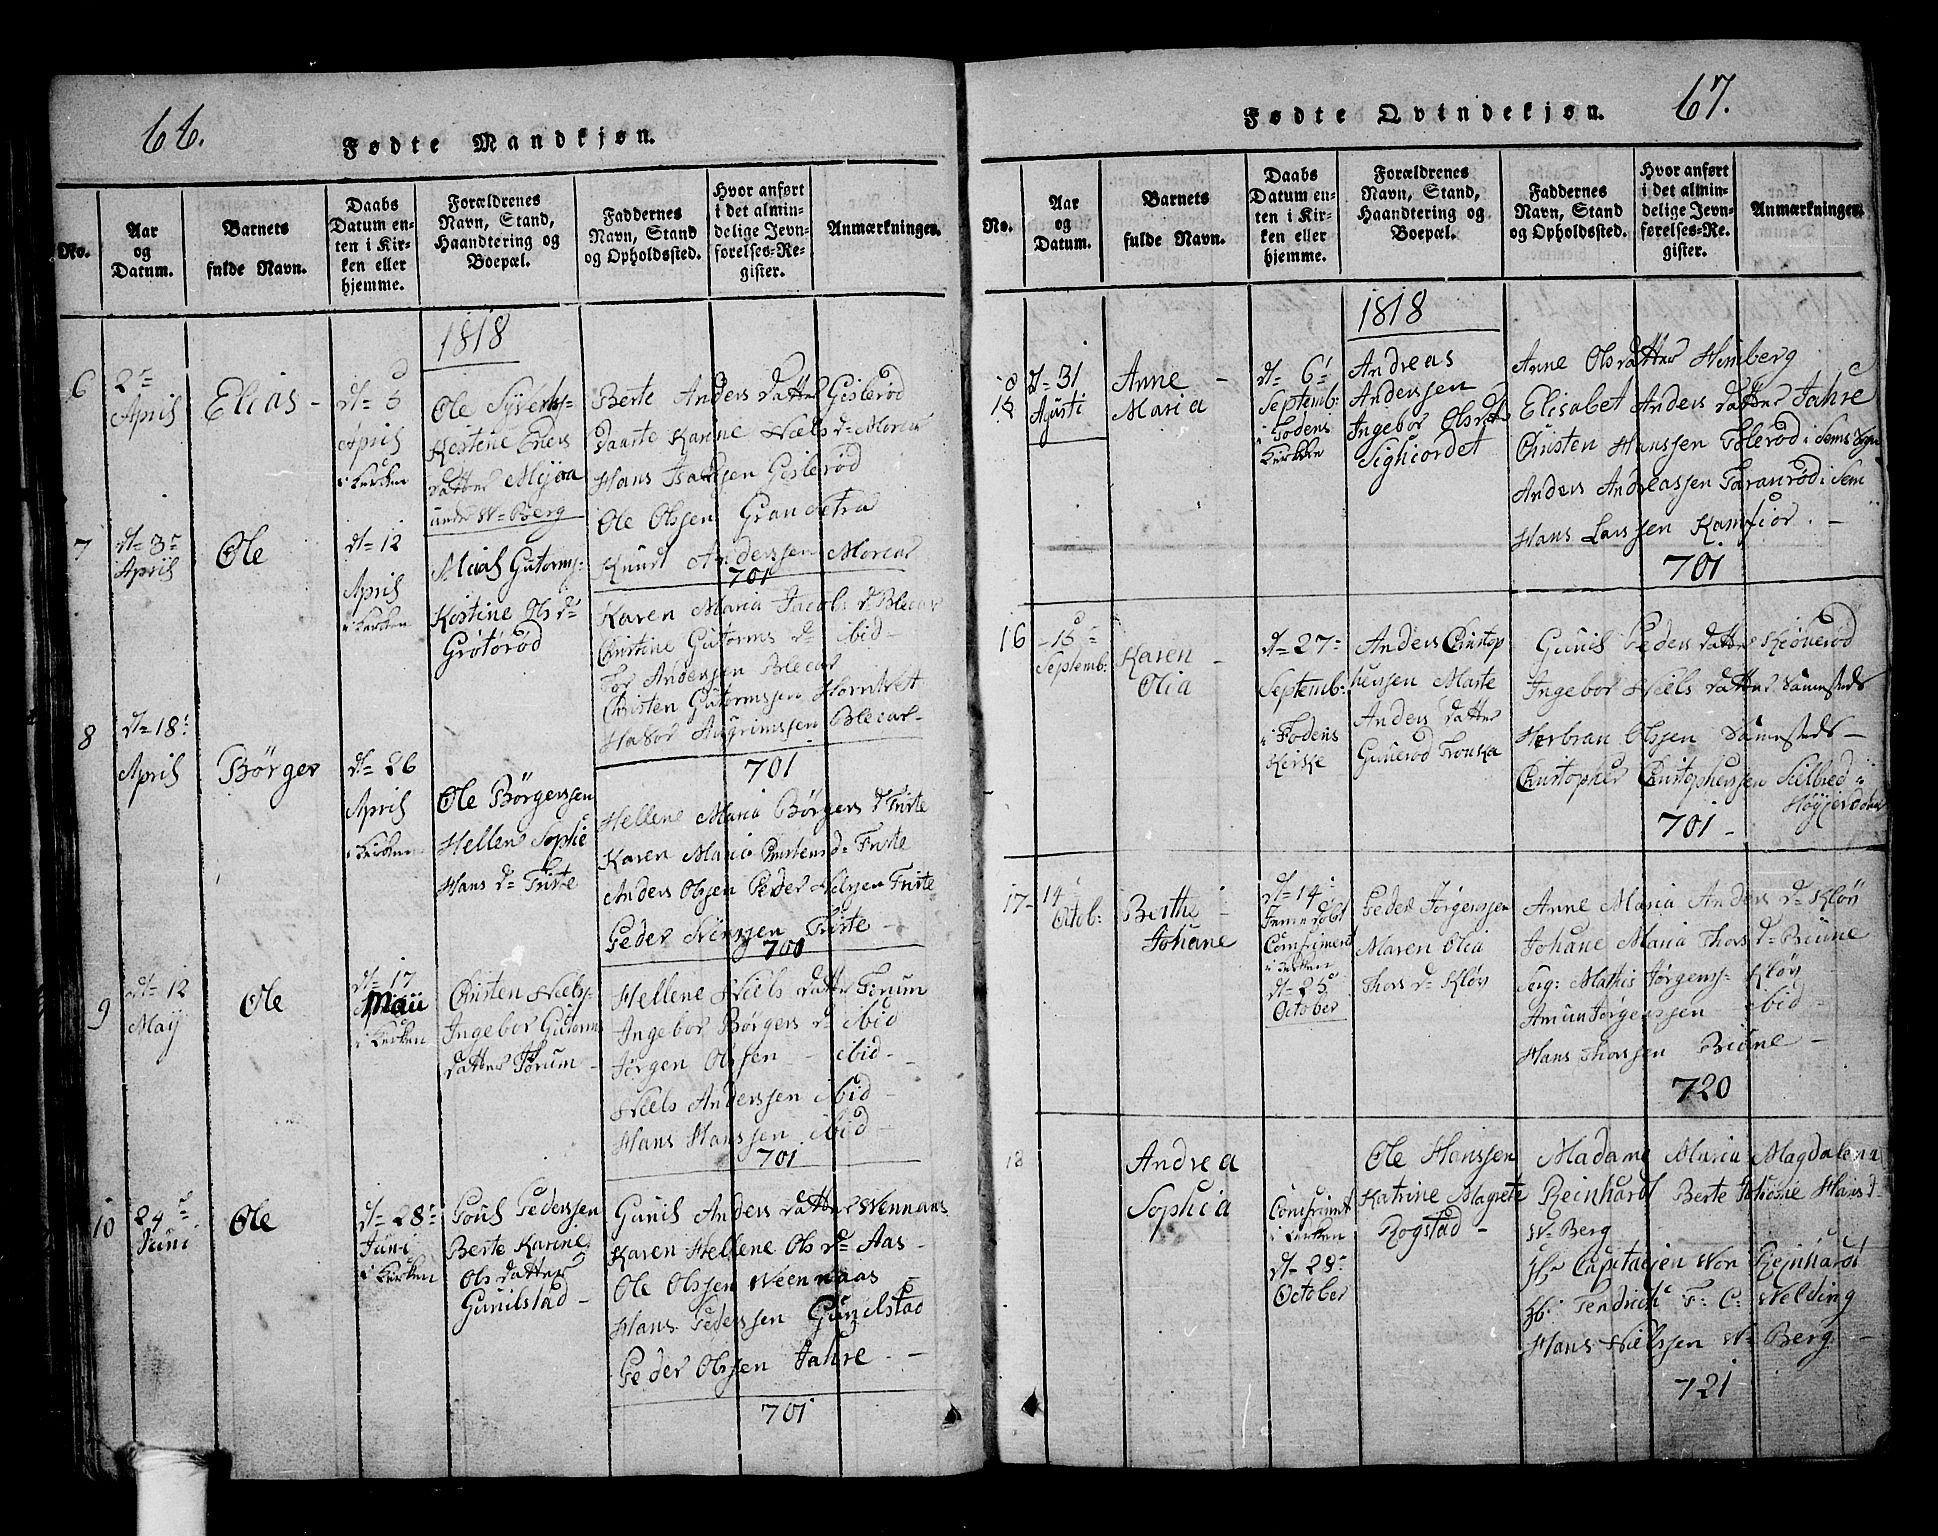 66.
Fødte Mandkjøn.
No.
Aar
og
Datum.
Barnets
fulde Navn.
Daabs
Datum en-
ten i Kir-
ken eller
hjemme.
Forældrenes
Navn, Stand,
Haandtering og
Boepæl.
Faddernes
Navn, Stand
og Opholdssted.
Hvor anført
i det almin-
delige Jevn-
førelses-Re-
gister.
Anmærkninger.
1818
6
2
April
Elias -
d= 5
April
i Kirken
Ole Syverts-
Kestene
datter
under W= Berg
Berte Anders datter Gislerød
Karine Niels d= Morear
Hans Isaksen Gislerød
Ole Olssen Gran
Knud Anderssen Morear
701
7
d= 3
April
Ole
d= 12
April
i Kirken
Gutorms-
Kestine Ols d=
Grøtørød
Karen Maria Jacobs d= Blecar
Christine Gutorms d= ibid -
Tor Anderssen Blecar
Christen Gutormssen Horntvet
Halvor Blecar -
701
8
d= 18
April
Børger
d= 26
April
i Kirken
Ole Børgerssen
Hellene Sophie
Hans d= Triste
Hellene Maria Børgers d= Triste
Karen Maria d= Triste
Anders Olssen Peder Triste
Peder Triste -
701
9
d= 12
Maij
Ole
d= 17
Maii
i Kirken
Christen Niels-
Ingebor Gutorms
datter Forum -
Hellene Niels datter Forum
Ingebor Børgers d= ibid
Jørgen Olssen - ibid -
Niels Anderssen ibid -
Hans Hanssen ibid -
701
10
24
Juni
Ole
d= 28
Juni
i Kirken
Pederssen
Berte Karine
Ols datter
Gunilstad -
Gunil Anders datter Wennaas
Karen Hellene Ols d= Aas -
Ole Olssen Weennaas
Hans Pederssen Gunilstad
Peder Olssen Jahre -
701
67.
Fødte Qvindekjøn.
No.
Aar
og
Datum.
Barnets
fulde Navn.
Daabs
Datum en-
ten i Kir-
ken eller
hjemme.
Forældrenes
Navn, Stand,
Haandtering og
Boepæl.
Faddernes
Navn, Stand
og Opholdssted.
Hvor anført
i det almin-
delige Jevn-
førelses-Re-
gister.
Anmærkninger.
1818
15
d= 31
Agusti
Anne -
Maria
d= 6
Septemb:
i Fodens
Kirke
Andreas
Anderssen
Ingebor Olsd
Anne Olsdatter Himberg
Elisabet Anders datter Jahre
Christen Hanssen i Sems
Anders Andreassen i Sem
Hans Larssen Kamfior. -
701
16
- 15
Septemb:
Karen -
Olia
d= 27
Septemb:
i Fodens
Kirke
Anders Christop
herssen Marte
Anders datter
Gunerød
Gunil Peders datter
Ingebor Niels datter Sammesteds
Herbran Olssen Sammesteds -
Christopher Christopherssen i
701 -
17 -
14
Octob:
Berthe -
Johane
d= 14
Confirmert
i Kirken
d= 25
October
Peder Jørgenssen
Maren Olia
Thors d= Kløv
Anne Maria Anders d= Kløv
Johane Maria Thors d= Biune
Mathis Jørgens- Kløv
Jørgenssen ibid -
Hans Thorssen Biune -
720
18
Andrea
Sophia
Confirmt
i Kirken
d= 28
October
Ole Hanssen
Katrine Magrete
Rogstad -
Madame Maria Magdalena
Reinhard Berte Johane Hans d=
W= Berg
Hr Capitaijen Won Reinhardt
F= C= Welding
Hans Nielssen W= Berg -
721